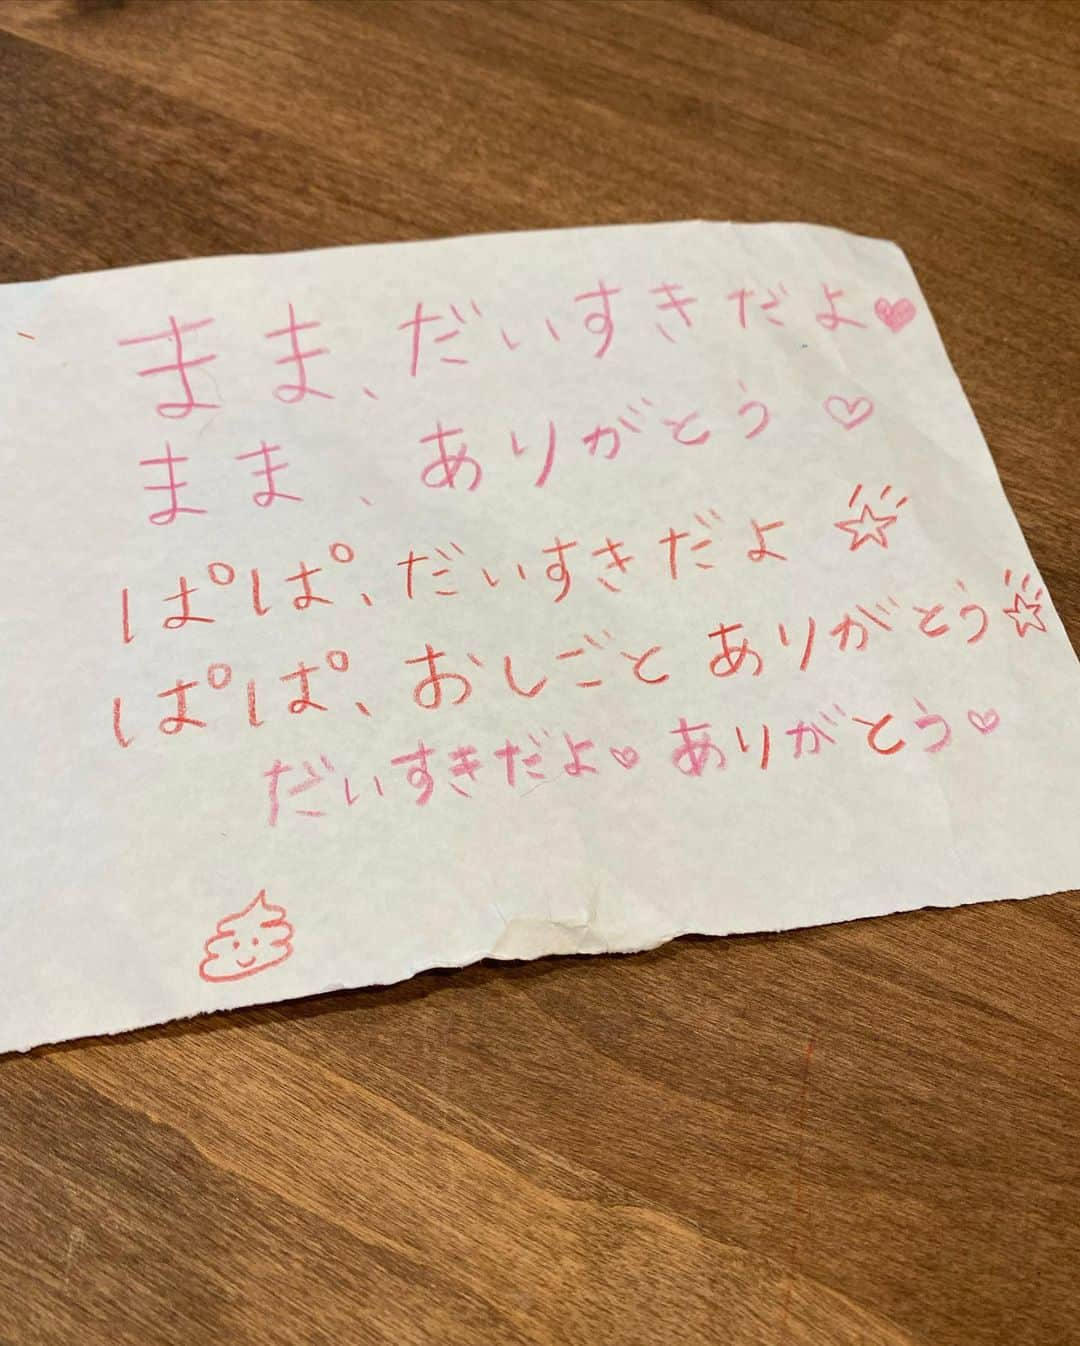 まま、だいすきだよ♥
まま、ありがとう♡
ぱぱ、だいすきだよ☆
ぱぱ、おしごと ありがとう☆
だいすきだよ♡ ありがとう♡